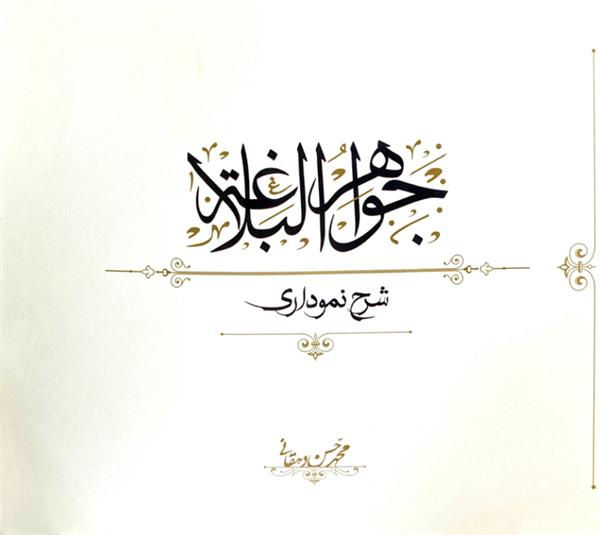 جواهر البلاغة
شرح نموداری
محمد حسن دهقانی